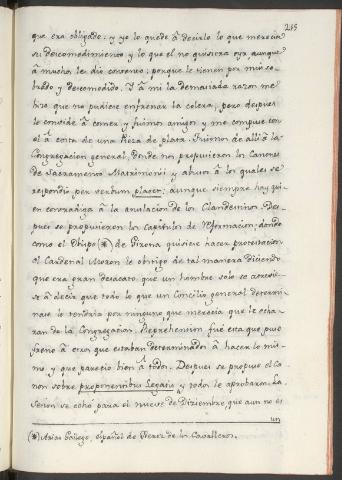 215
que era obligado: y yo lo quede à decirlo lo que merecia
su descomedimiento y lo que el no quisiera oyr, aunque
à muchos les dio contento: porque le tienen por mui co-
brado y descomedido. I à mi la demasiada razon me
hizo que no pudiese enfrenar la colera; pero despues
le convidè à comer y fuimos amigos y me compuse con
el à costa de una Pieza de plata. Fuimos de alli à la
Congregacion general, donde se propusieron los Canones
de Sacramento Matrimonii y abusos à los quales se
respondio per verbum placet: aunque siempre hay qui-
en contradiga à la anulacion de los Clandestinos. Des-
pues se propusieron los Capitulos de Reformacion; donde
como el Obispo (*) de Girona quisiese hacer protestacion
al Cardenal Moron le obstigo de tal manera diciendo
que era gran desacato que un hombre solo se atrevie-
se à decir que todo lo que un Concilio general determi-
nase lo tendria por ninguno, que merecia que le echa-
ran de la Congregacion. Reprehension fue esta que puso
freno à otros que estaban determinados à hacer lo mis-
mo, y que parecio bien à todos. Despues se propuso el Ca-
non sobre proponentibus Legatis y todos le aprobaron. La
Sesion se echò para el nueve de Diziembre, que aun no es
un
(*) Arias Gallego, español de Perez de la Cavalleros.